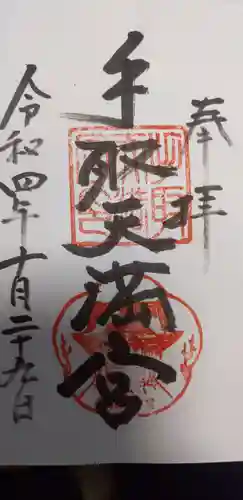 奉拝
手取天満宮
令和四年十月二十九日